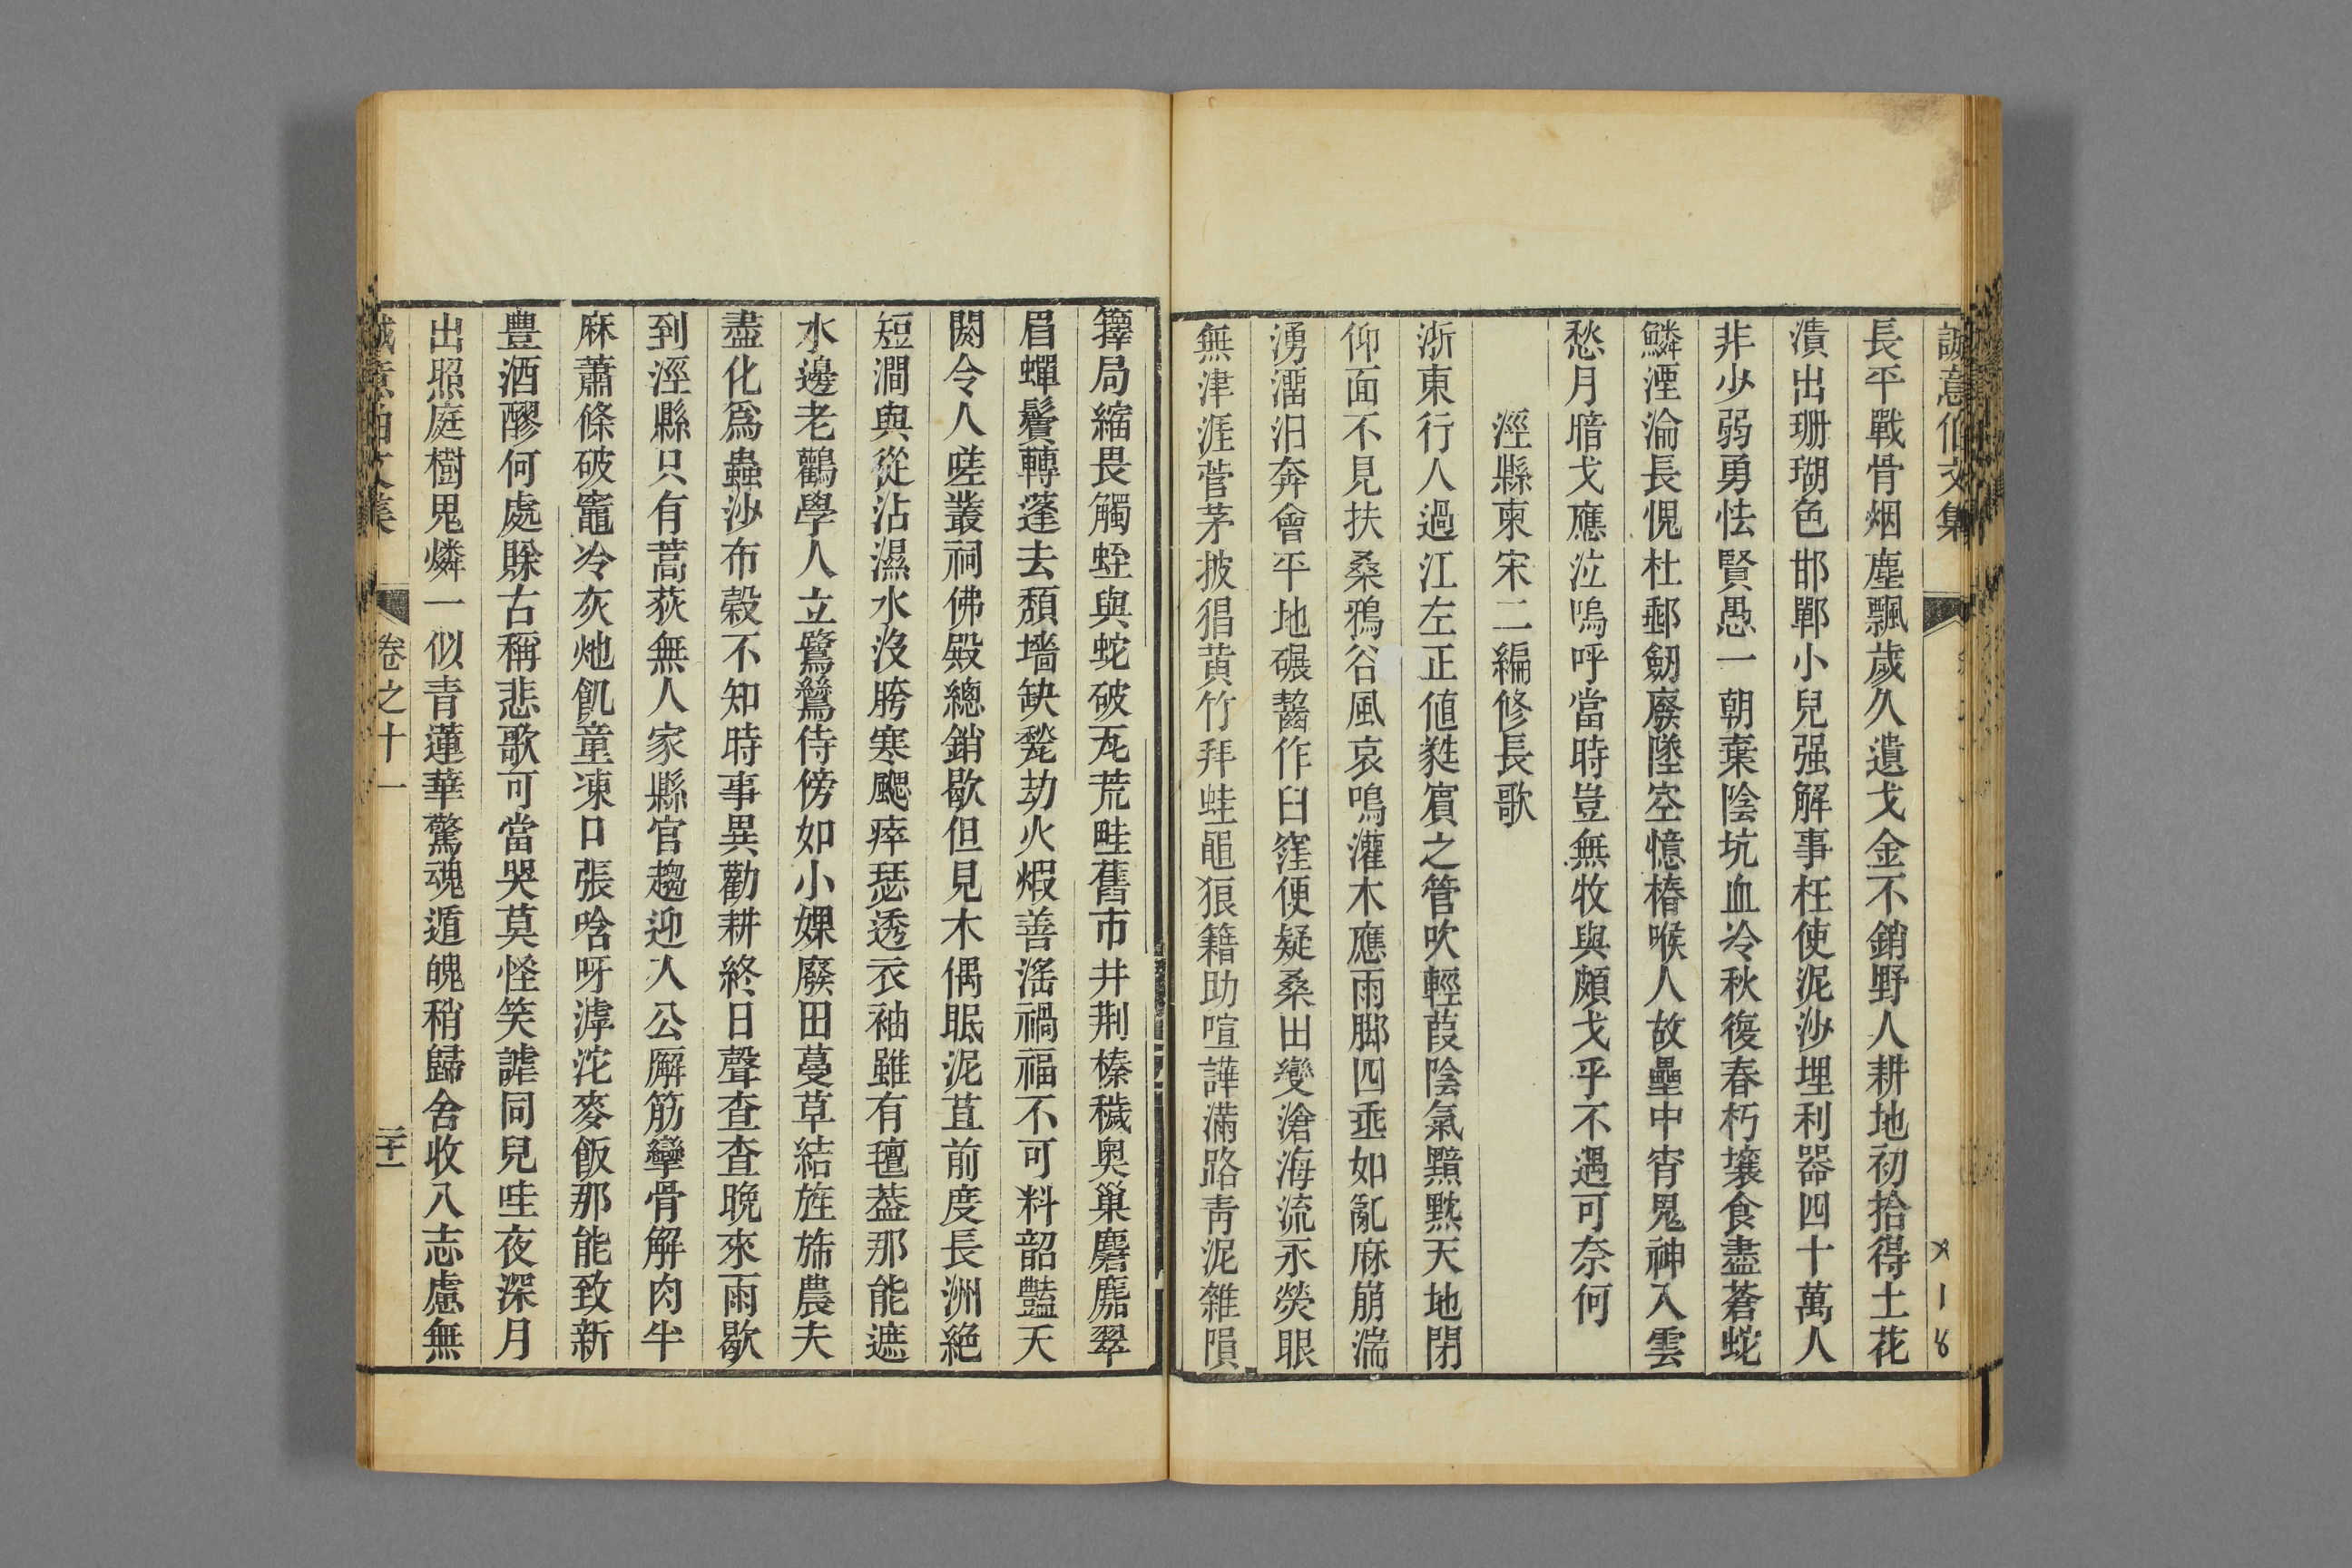 誠意伯文集
長平戰骨烟塵飄歲久遺戈金不銷野人耕地初拾得土花
漬出珊瑚色邯鄲小兒强解事枉使泥沙埋利器四十萬人
非少弱勇怯賢愚一朝棄陰坑血冷秋復春朽壤食盡蒼蛇
鱗湮淪長愧杜郵劒廢墜空憶樁喉人故壘中宵鬼神入雲
愁月暗戈應泣嗚呼當時豈無牧與頗戈乎不遇可奈何
涇縣東宋二編修長歌
浙東行人過江左正値蕤賓之管吹輕葭陰氣黯黮天地閉
仰面不見扶桑鴉谷風哀鳴灌木應雨脚四垂如亂麻崩湍
湧溜汨奔會平地碾齾作臼窪便疑桑田變滄海流永熒眼
無津涯菅茅披猖黄竹拜蛙黽狼籍助喧譁滿路靑泥雜隕
籜局縮畏觸蛭與蛇破瓦荒畦舊市井荆榛穢奥巢麏麚翠
眉蟬鬢轉蓬去頹墻缺甃劫火煆善滛禍福不可料韶豔天
閼令人嗟叢祠佛殿總銷歇但見木偶眠泥苴前度長洲絶
短澗與從沾濕水沒胯寒飋瘁瑟透衣袖雖有氊蓋那能遮
水邊老鸛學人立鷺鷥侍傍如小婐廢田蔓草結旌斾農夫
盡化爲蟲沙布穀不知時事異勸耕終日聲查查晚來雨歇
到涇縣只有蒿荻無人家縣官趨迎入公廨筋攣骨解肉半
麻蕭條破竈冷灰灺飢童凍口張唅呀滹沱麥飯那能致新
豊酒醪何處賖古稱悲歌可當哭莫怪笑謔同兒哇夜深月
出照庭樹鬼燐一似青蓮華驚魂遁魄稍歸舍收入志慮無
誠意伯文集 卷之十一